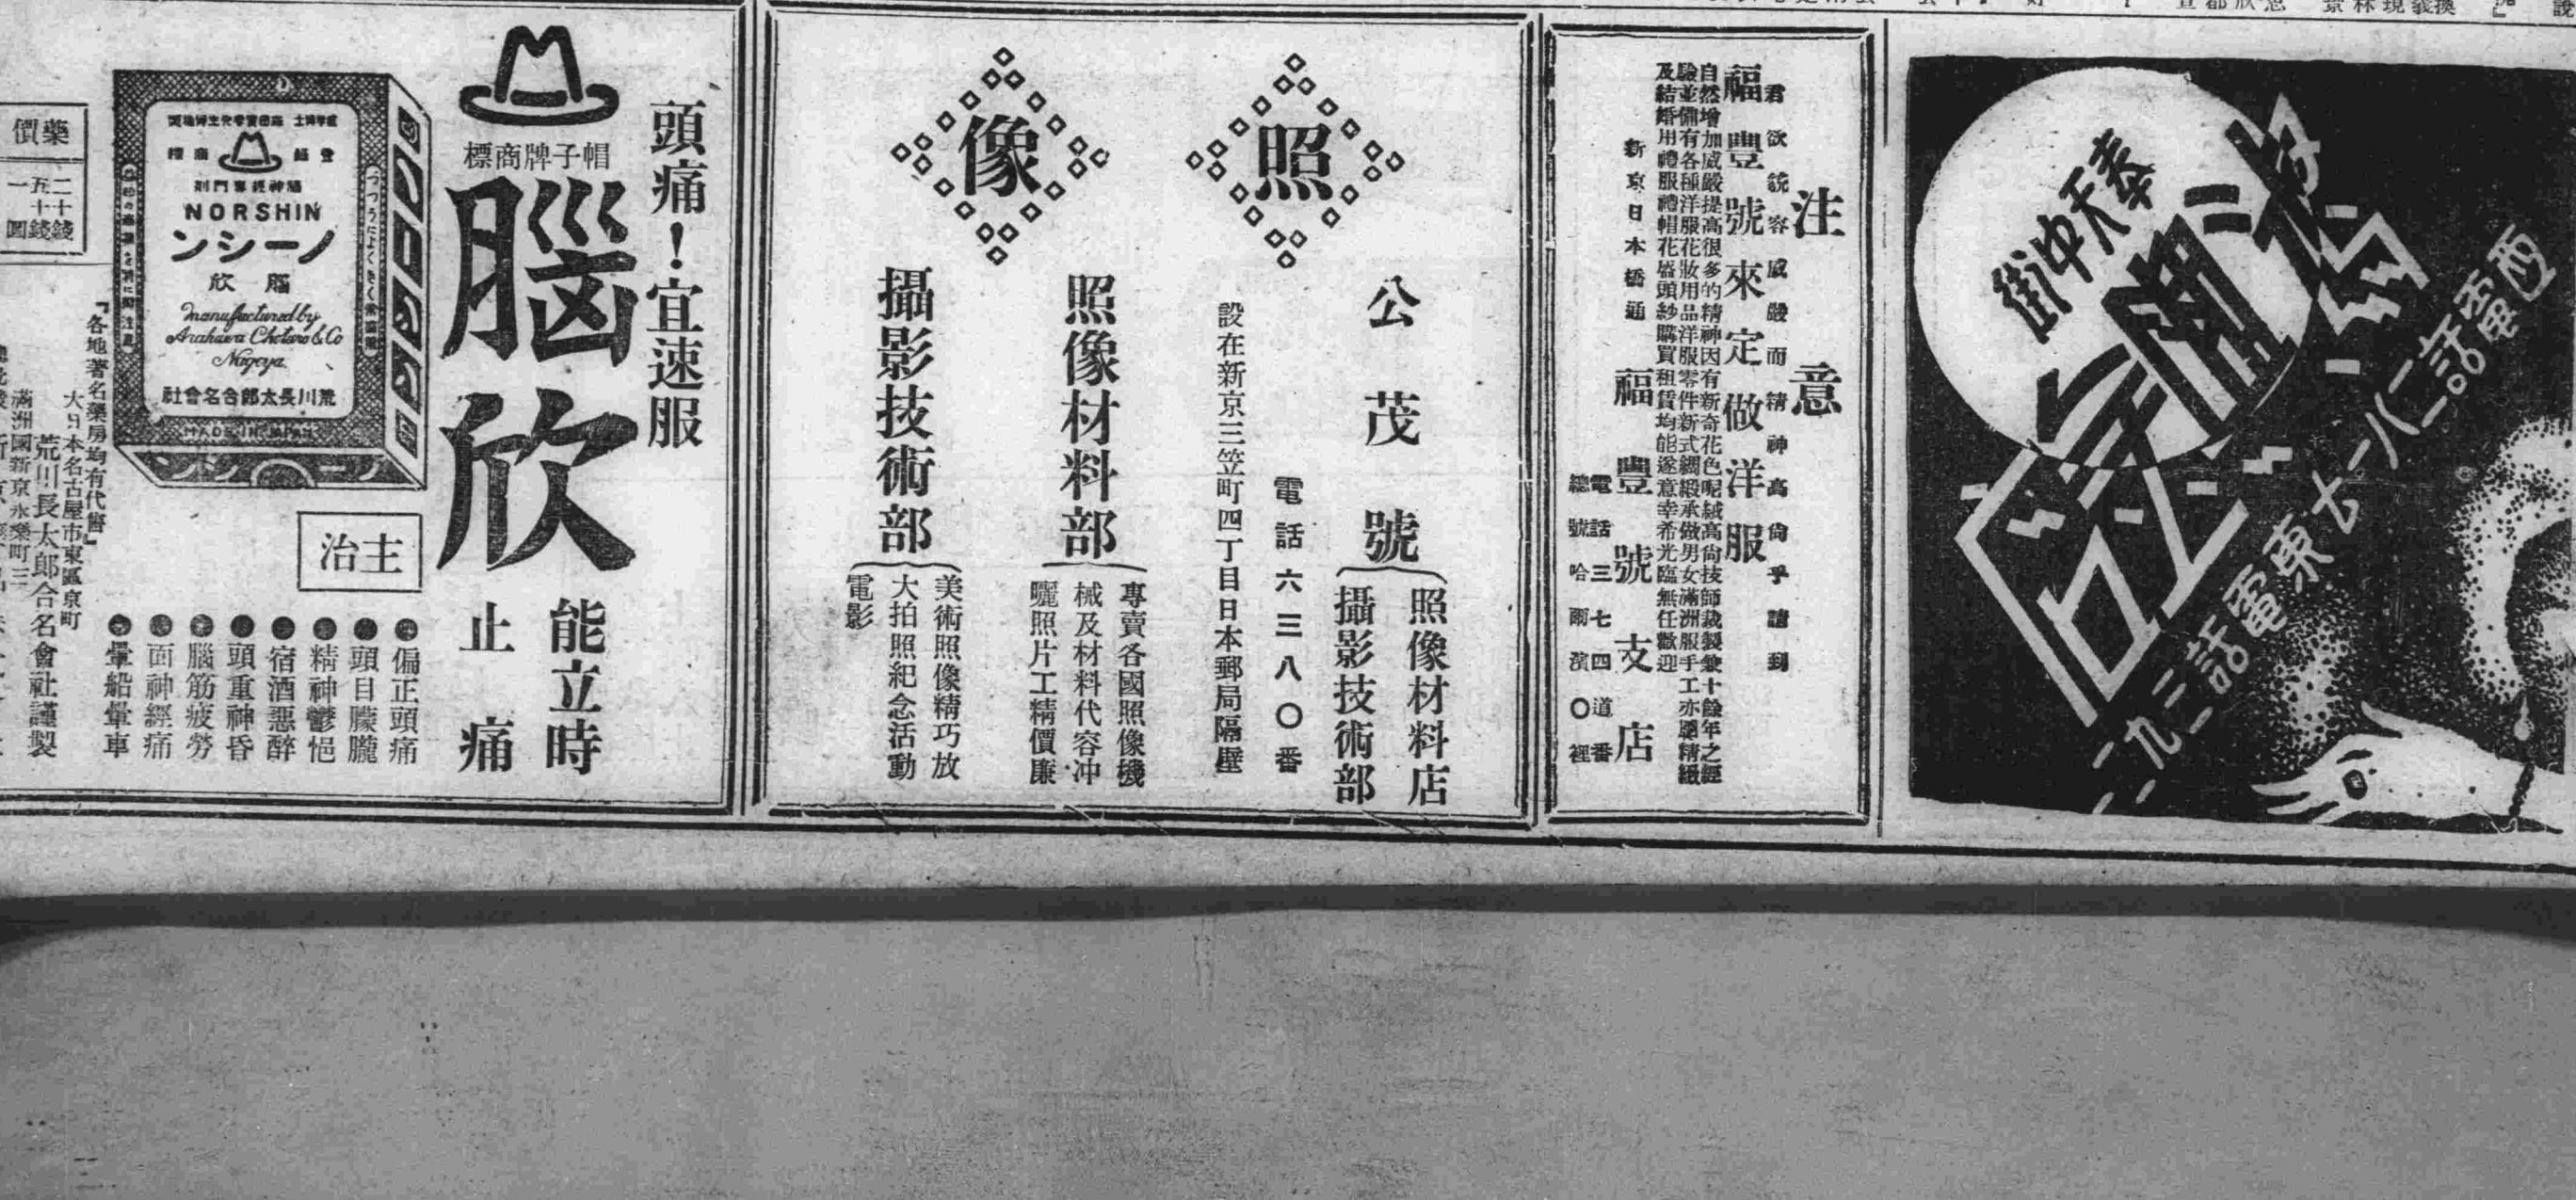 奉天沖街
西電話二一八一七
東電話二三九二一
注意
君欲貌容威嚴而精神高尙乎請到
福豐號來定做洋服
自然增加威嚴提高很多的精神因有新奇花色呢絨高尙技師裁製兼十餘年之經
驗並備有各種洋服花妝用品洋服零件新式綢緞承做男女滿洲服手工亦廳精緻
及結婚用禮服禮帽花籃頭紗購買租賃均能遂意幸希光臨無任歡迎
新京日本橋通
福豐號支店
電話三七四〇番
總號哈爾濱道裡
照像
公茂號
照像材料店
攝影技術部
電話六三八〇番
設在新京三笠町四丁目日本郵局隔壁
照像材料部
專賣各國照像機
械及材料代容冲
曬照片工精價廉
攝影技術部
美術照像精巧放
大拍照紀念活動
電影
頭痛！宜速服
帽子牌商標
腦欣
能立時
止痛
登錄商標
腦神經專門劑
NORSHIN
ノーシン
腦欣
Manufactured by
Arakawa Chotaro & Co
Nagoya.
荒川長太郎合名會社
MADE IN JAPAN
ノーシン
主治
●偏正頭痛
●頭目朦朧
●精神鬱悒
●宿酒惡醉
●頭重神昏
●腦筋疲勞
●面神經痛
●暈船暈車
藥價
二十錢
五十錢
一圓
『各地著名藥房均有代售』
大日本名古屋市東區京町
荒川長太郎合名會社謹製
滿洲國新京永樂町三